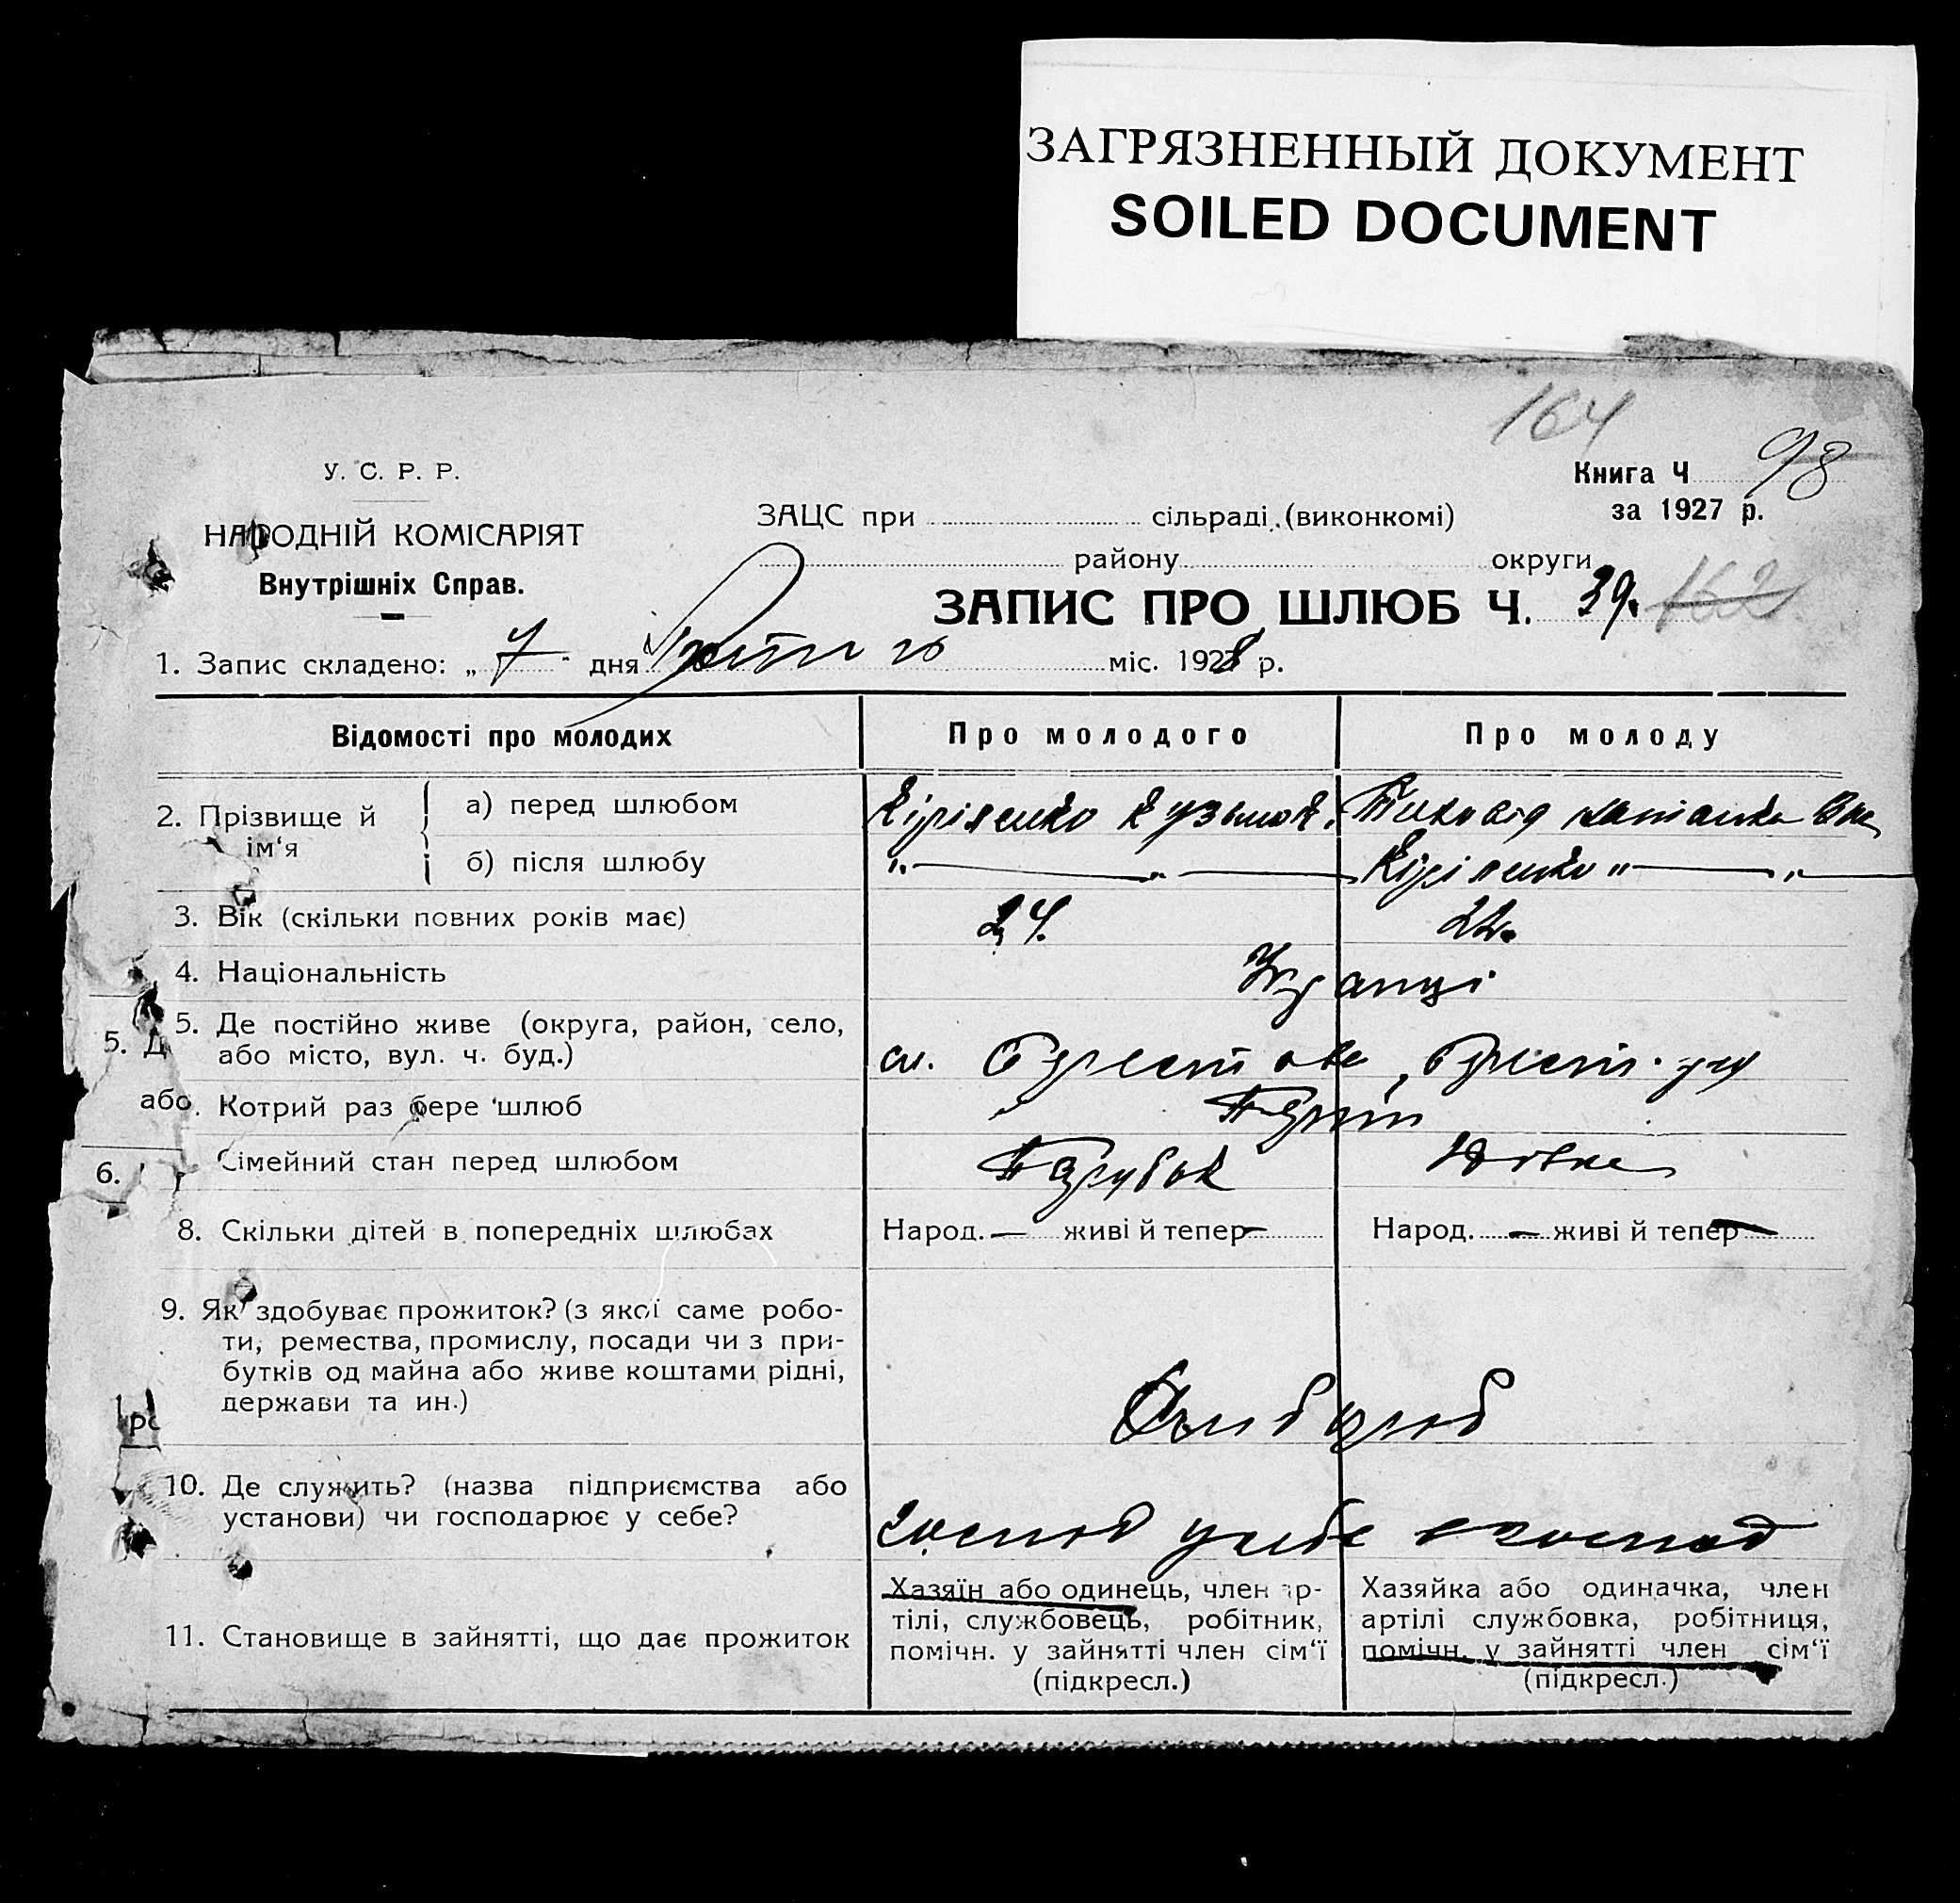 ЗАГРЯЗНЕННЫЙ ДОКУМЕНТ
SOILED DOCUMENT
164
У. С. Р. Р.
Книга Ч 98
за 1927 р.
НАРОДНІЙ КОМІСАРІЯТ
Внутрішніх Справ.
ЗАЦС при сільраді (виконкомі)
району округи
ЗАПИС ПРО ШЛЮБ Ч. 39. 162
1. Запис складено: „ 7 " дня міс. 1928 р.
Відомості про молодих Про молодого Про молоду
2. Прізвище й ім'я
а) перед шлюбом Кіріленко Кузьма
б) після шлюбу " — " — Кіріленко " — "
3. Вік (скільки повних років має) 24. 22.
4. Національність Українці
5. Де постійно живе (округа, район, село,
або місто, вул. ч. буд.)
5. Д
або
Котрий раз бере шлюб
6.
Сімейний стан перед шлюбом Парубок Дівка
8. Скільки дітей в попередніх шлюбах Народ. — живі й тепер — Народ. — живі й тепер —
9. Як здобуває прожиток? (з якої саме робо-
ти, ремества, промислу, посади чи з при-
бутків од майна або живе коштами рідні,
держави та ин.)
Хлібороб
10. Де служить? (назва підприємства або
установи) чи господарює у себе?
господ у себе господ
11. Становище в зайнятті, що дає прожиток
Хазяїн або одинець, член ар-
тілі, службовець, робітник,
помічн. у зайнятті член сім'ї
(підкресл.)
Хазяйка або одиначка, член
артілі службовка, робітниця,
помічн. у зайнятті член сім'ї
(підкресл.)